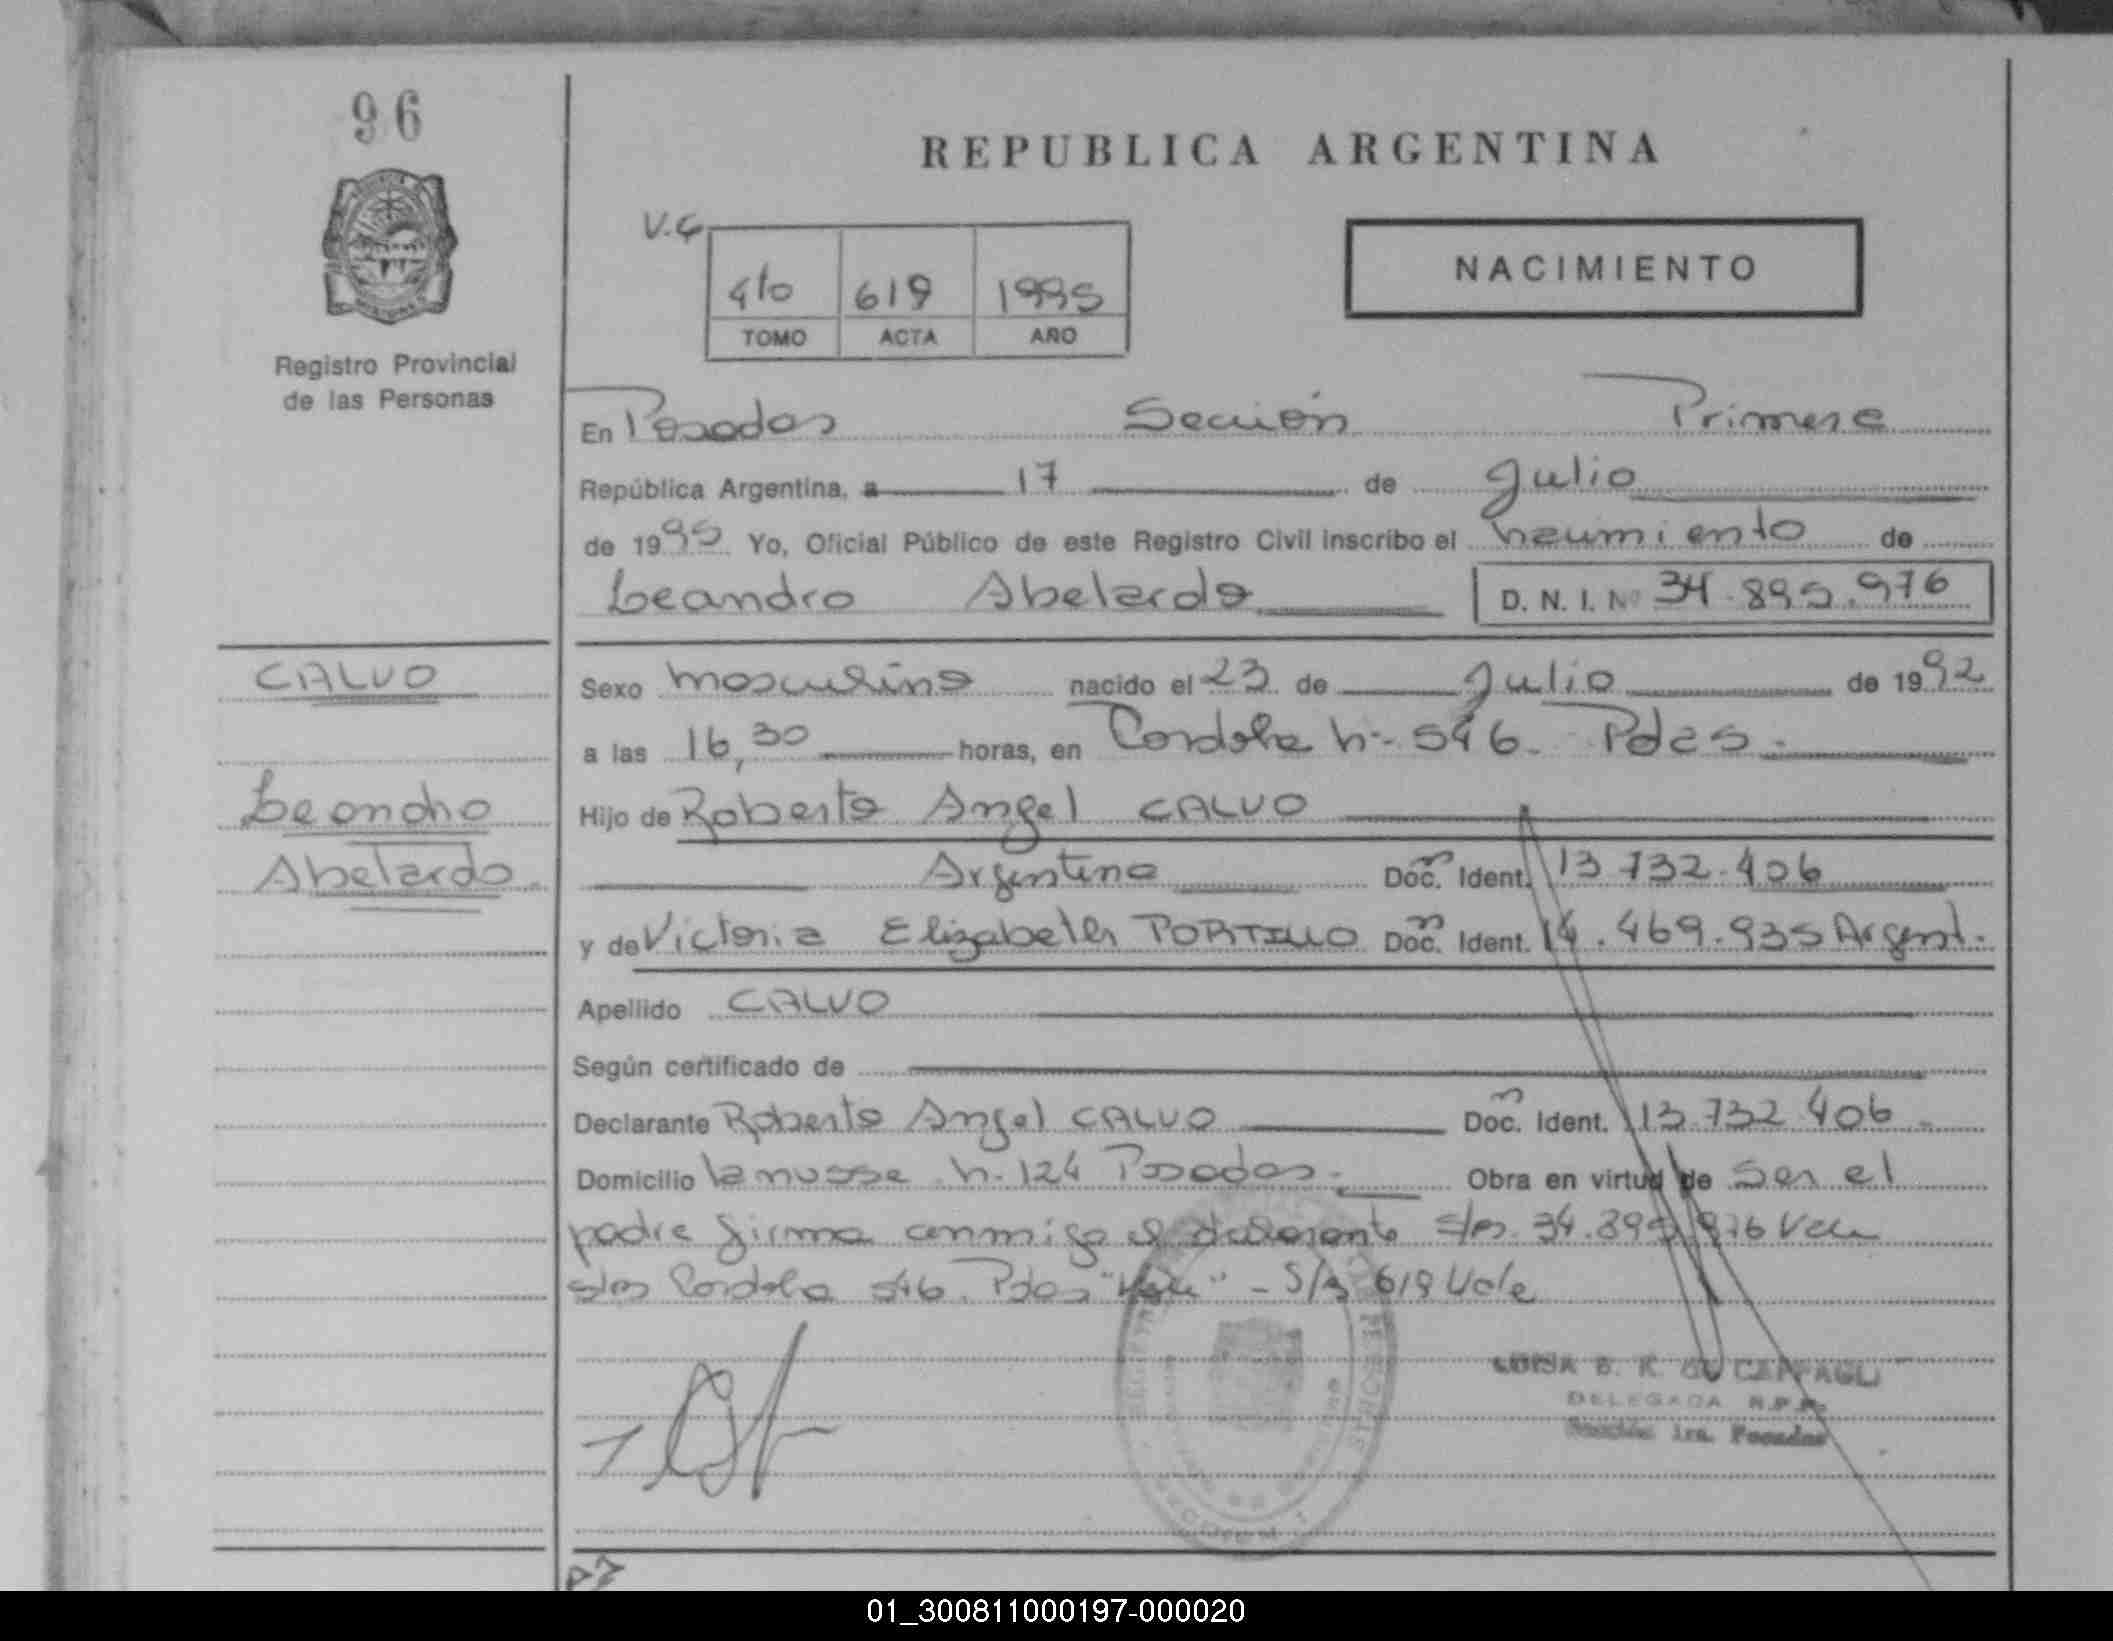 96
REPUBLICA ARGENTINA
Registro Provincial
de las Personas
V.4
4to 619 1995
TOMO ACTA AÑO
NACIMIENTO
En Posadas Sección Primera
República Argentina, a 17 de Julio
de 1995 Yo, Oficial Público de este Registro Civil inscribo el nacimiento de
Leandro Abelardo D. N. I. Nº 34.895.976
CALVO
Leandro
Abelardo.
Sexo masculino nacido el 23 de Julio de 1992
a las 16,30 horas, en Cordoba n- 546. Pdas.
Hijo de Roberto Angel CALVO
Argentino Doc. Ident. 13.732.406
y de Victoria Elizabeth PORTILLO Doc. Ident. 14.469.935 Argent.
Apellido CALVO
Según certificado de
Declarante Roberto Angel CALVO Doc. Ident. 13.732.406.
Domicilio Lanusse n- 124 Posadas. Obra en virtud de ser el
padre firma conmigo el declarante S/r 34.895.976 Vale
S/r Cordoba 546. Pdas "Vale" - S/r 619 Vale
LUISA B. R. DE
DELEGADA R.P.P.
Sección 1ra. Posadas
01_300811000197-000020